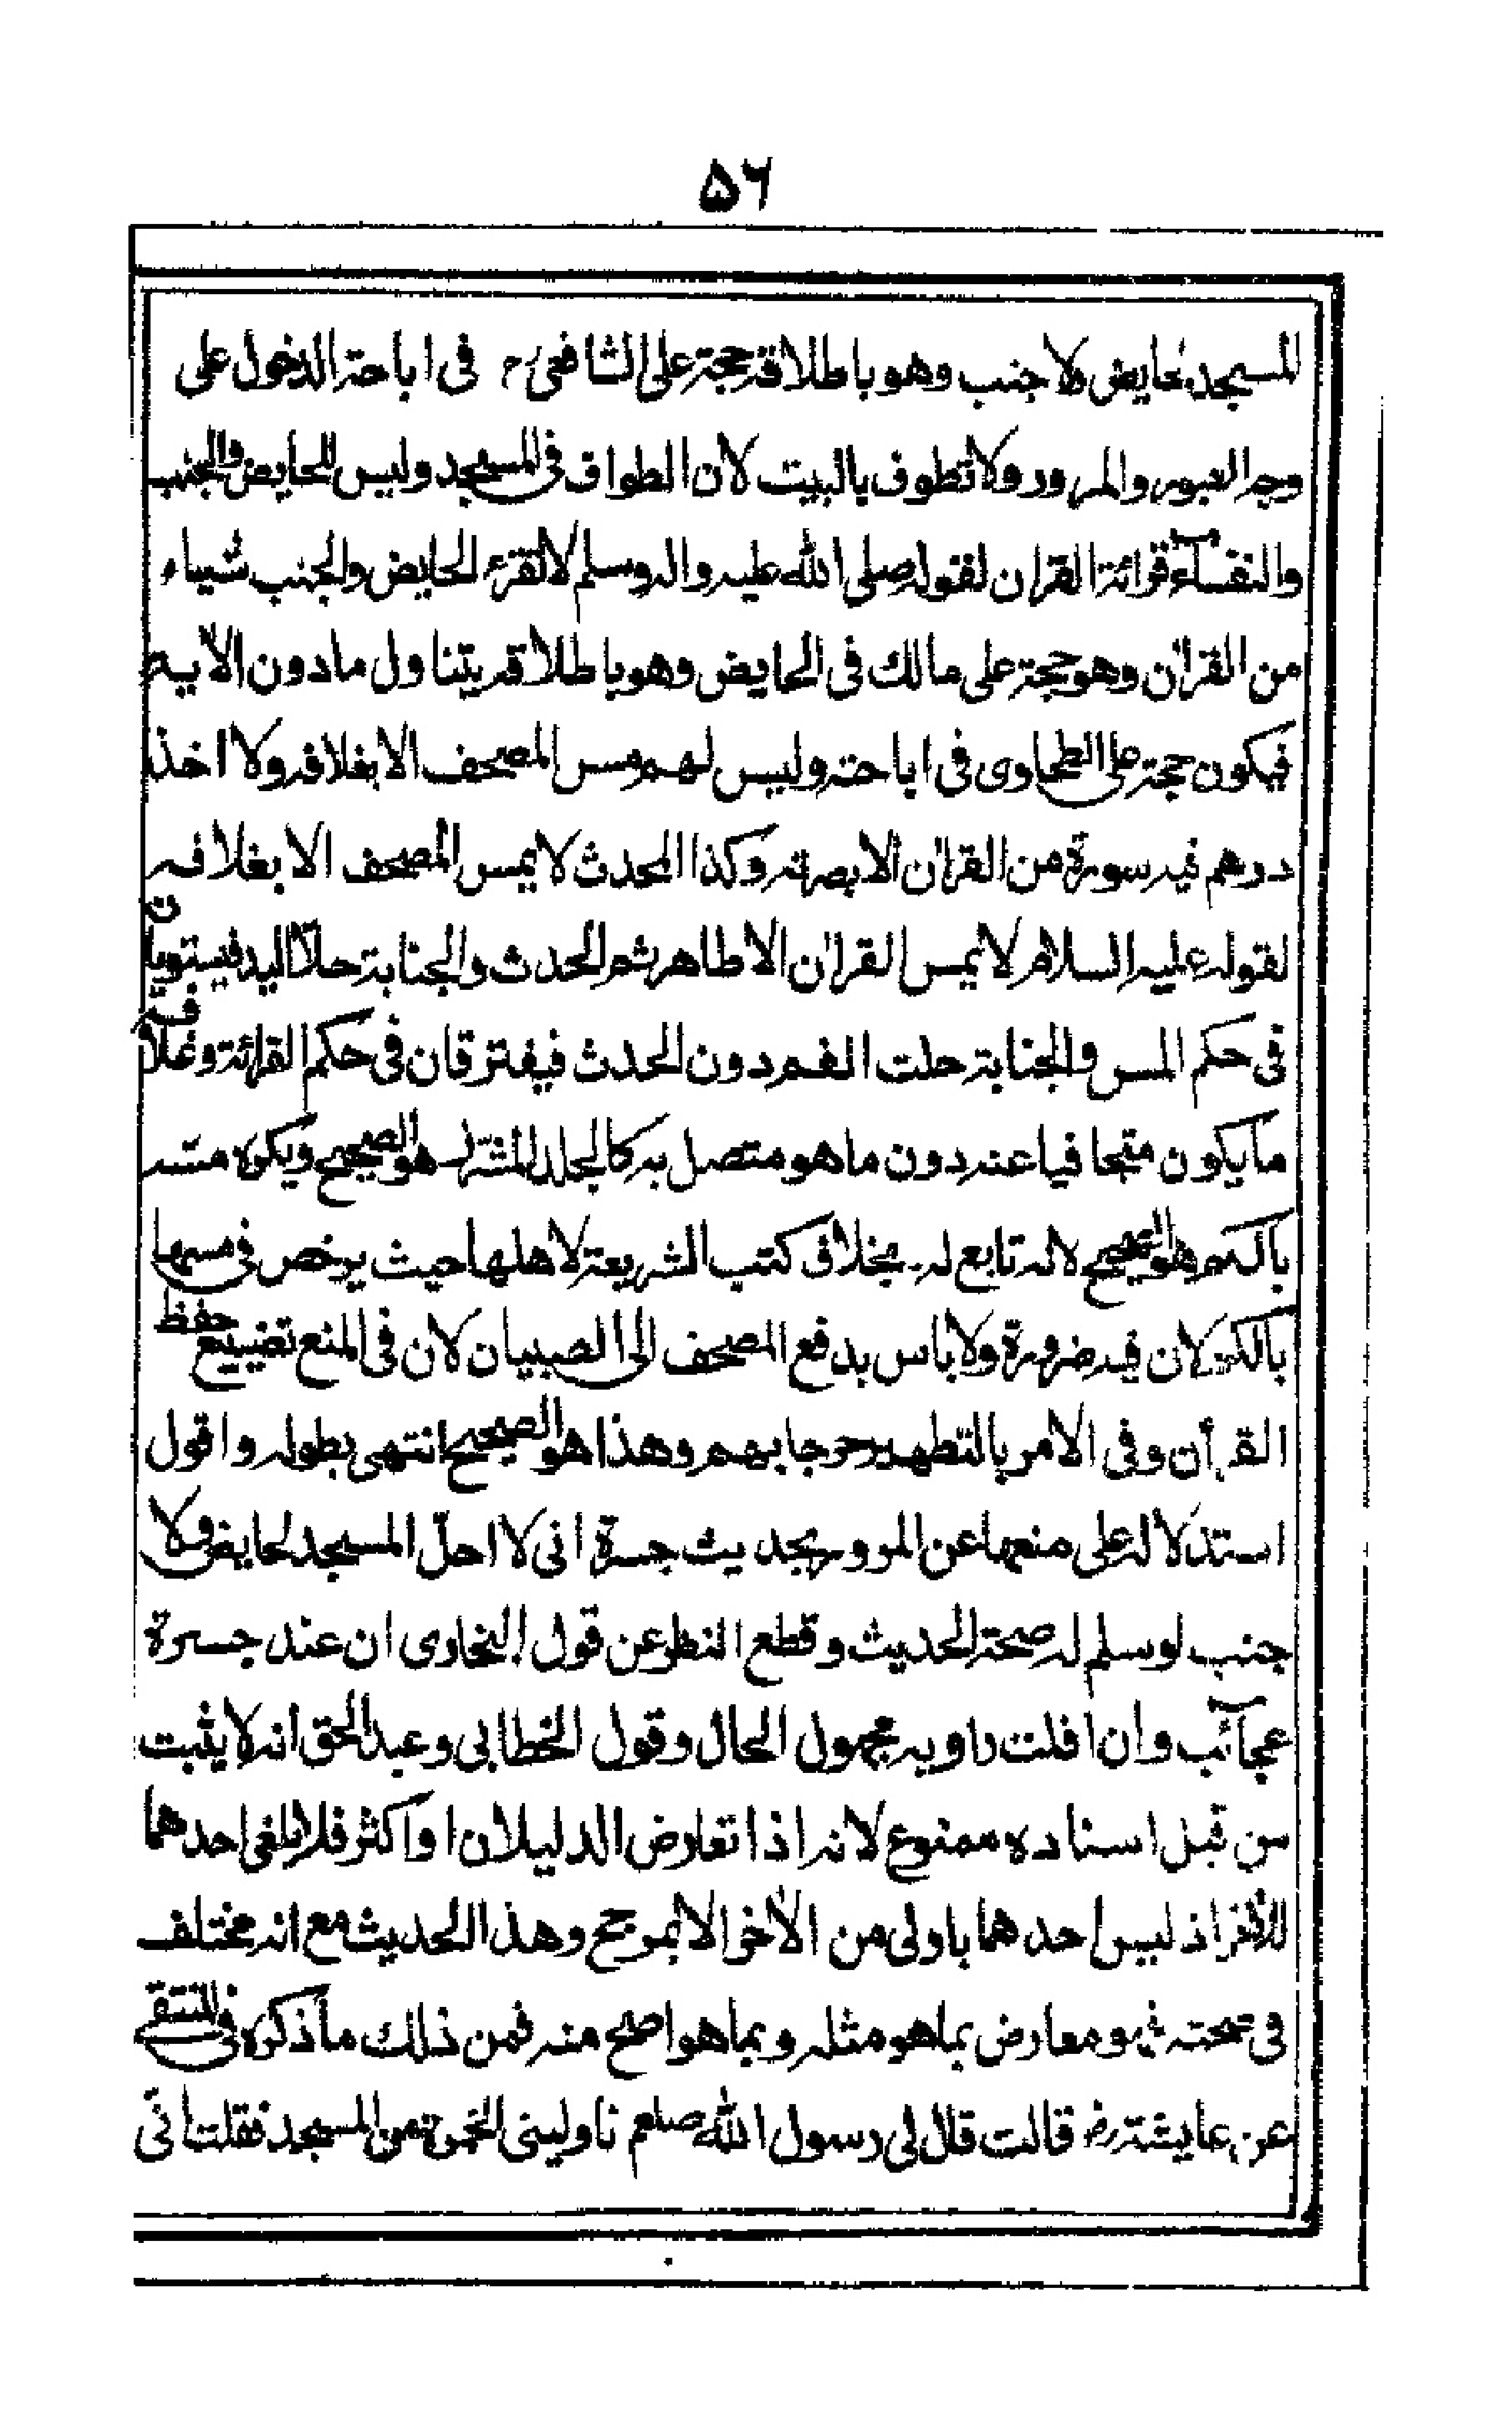 ۵۶
المسجد لحايض ولا جنب وهو باطلاقه حجة على الشافعىؒ فى اباحة الدخول على
وجه العبور والمرور ولا تطوف بالبيت لان الطواف فى المسجد وليس للحايض والجنب
والنفسآء قرائة القران لقوله صلى الله عليه واله وسلم لا تقرء الحايض والجنب شيياء
من القران وهو حجة على مالك فى الحايض وهو باطلاقه يتناول ما دون الآية
فيكون حجة على الطحاوى فى اباحته وليس لهم مس المصحف الا بغلافه ولا اخذ
درهم فيه سورة من القران الا بصرته وكذا المحدث لا يمس المصحف الا بغلافه
لقوله عليه السلام لا يمس القران الا طاهر ثم الحدث والجنابة حلا اليد فيستويان
فى حكم المس والجنابة حلت الفم دون الحدث فيفترقان فى حكم القرائة وغلافه
ما يكون متجافيا عنه دون ما هو متصل به كالجلد المشرز هو الصحيح ويكره مسه
بالكم هو الصحيح لانه تابع له بخلاف كتب الشريعة لاهلها حيث يرخص فى مسها
بالكم لان فيه ضرورة ولا باس بدفع المصحف الى الصبيان لان فى المنع تضييع حفظ
القرأن وفى الامر بالتطهير حرجا بهم وهذا هو الصحيح انتهى بطوله واقول
استدلاله على منعها عن المرور بحديث جسرة انى لا احلّ المسجد لحايض ولا
جنب لو سلم له صحة الحديث وقطع النظر عن قول البخاوى ان عند جسرة
عجآئب وان افلت راويه مجهول الحال وقول الخطابى وعبد الحق انه لا يثبت
من قبل اسناده ممنوع لانه اذا تعارض الدليلان او اكثر فلا يلغى احدهما
للاخر اذ ليس احدهما باولى من الاخر الا بمرجح وهذا الحديث مع انه مختلف
فى صحته فهو معارض بما هو مثله وبما هو اصح منه فمن ذلك ما ذكره فى المنتقى
عن عايشة رض قالت قال لى رسول الله صلعم ناولينى الخمرة من المسجد فقلت انى